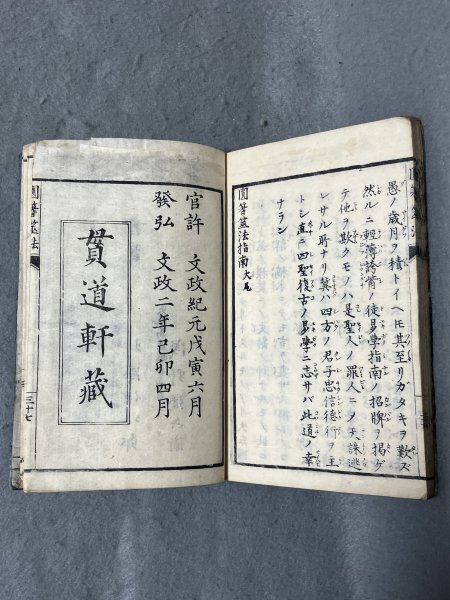 愚ノ歳月ヲ積トイヘ𪜈其至リガタキヲ歎ズ
然ルニ輕薄誇脊ノ徒易學指南ノ招牌ヲ掲ゲ
テ他ヲ欺クモノハ是聖人ノ罪人ニメ天誅逃
レサル所ナリ冀ハ四方ノ君子忠信德行ヲ主
トシ直ニ四聖復古ノ易學ニ志サバ此道ノ幸
ナラン
圓蓍筮法指南大尾
官許 文政紀元戊寅六月
發弘 文政二年己卯四月
貫道軒藏
圓蓍筮法
三十七